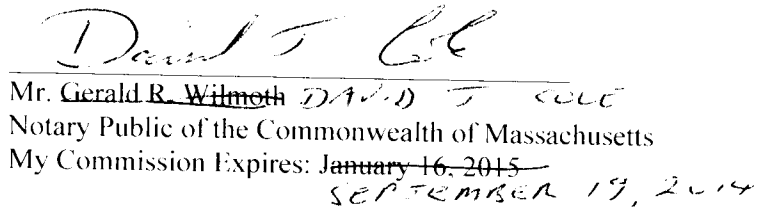 David J Cole
Mr. Gerald R. Wilmoth DAVID J COLE
Notary Public of the Commonwealth of Massachusetts
My Commission Expires: January 16, 2015
SEPTEMBER 19, 2014